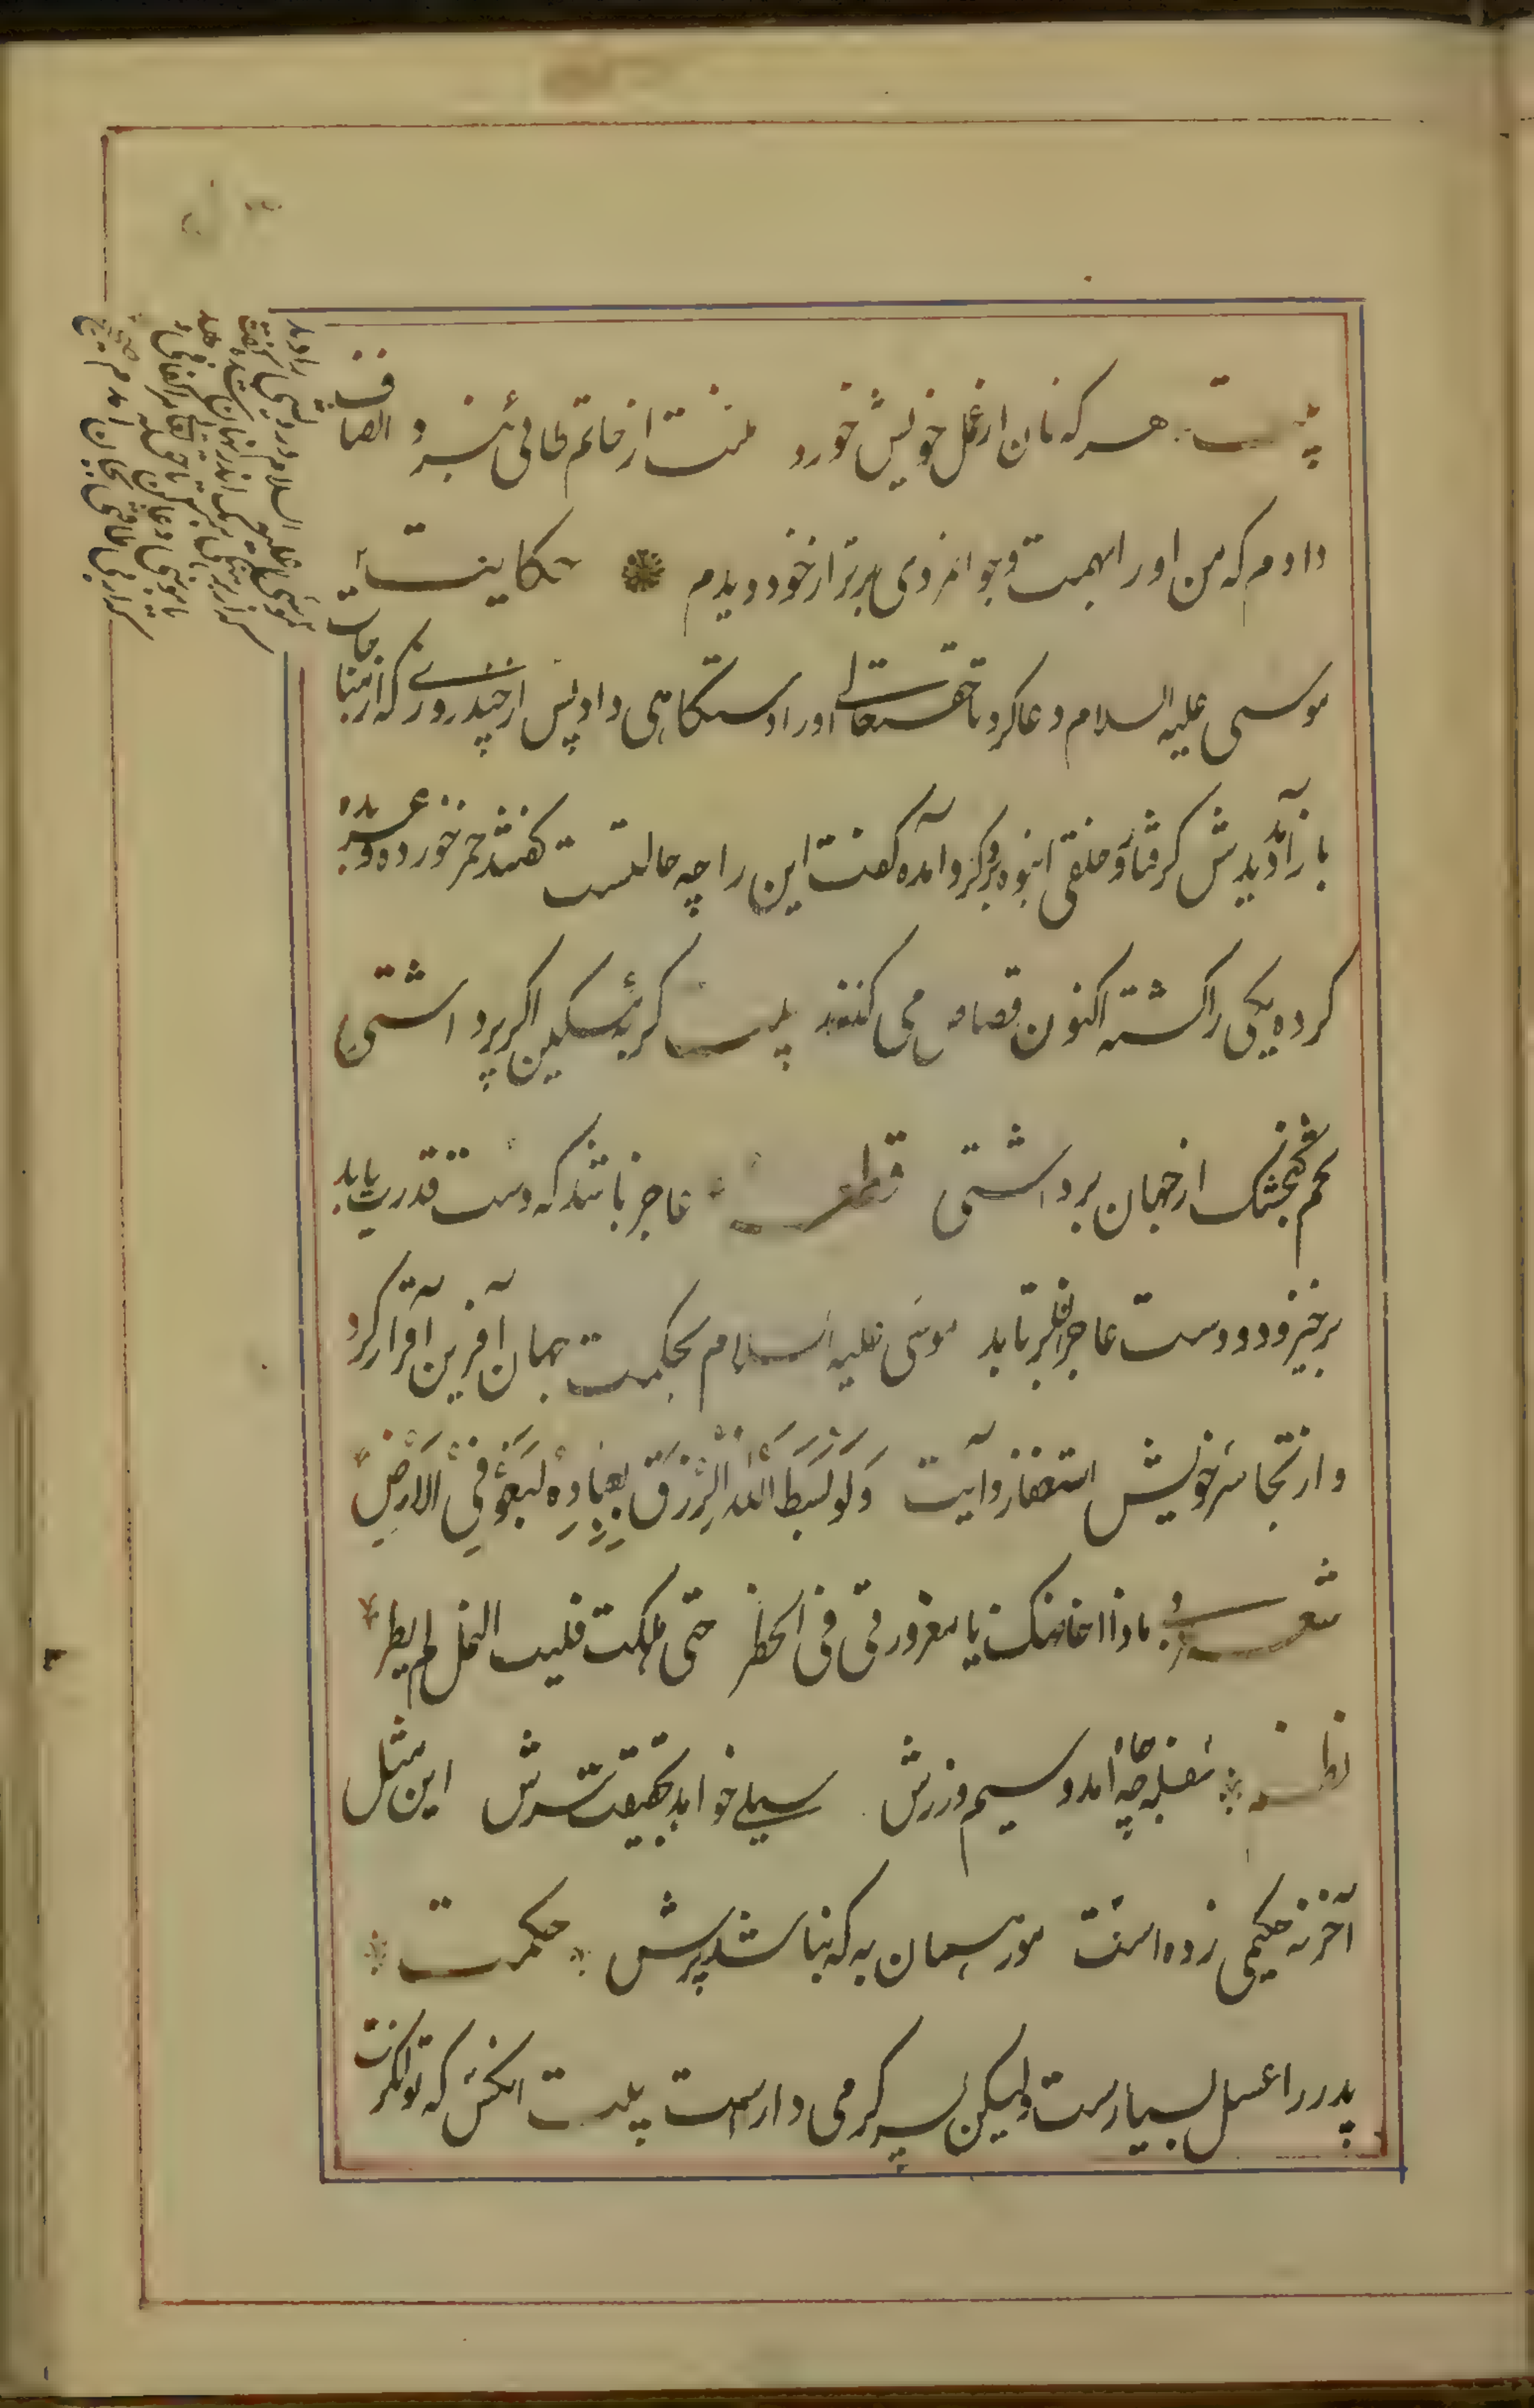 بیت هر که نان از عمل خویش خورد منت از حاتم طائی نبرد انصاف
دادم که من او را بهمت و جوانمردی برتر از خود دیدم حکایت
موسی علیه السلام دعا کرد تا حقتعالی او را دستگاهی داد پس از چند روزے که از مناجات
باز آمد دیدش گرفتار و خلقی انبوه برو گرد آمده گفت این را چه حالتست گفتند خمر خورده و عربده
کرده یکی را کشته اکنون قصاص می کنند بیت گربه مسکین اگر پر داشتی
تخم گنجشک از جهان برداشتی قطعه عاجز باشد که دست قدرت یابد
برخیزد و دست عاجزان برتابد موسی علیه السلام بحکمت جهان آفرین اقرار کرد
و از تجاسر خویش استغفار و آیت وَلَو بَسَطَ اللّٰهُ الرِّزقَ لِعِبَادِهِ لَبَغَوْ فِی الْاَرْضِ
شعر ما ذا اخاضک یا مغرور فی الخطر حتی هلکت فلیت النمل لم یطر
نظم سفله چو جاه آمد و سیم و زرش سیلی خواهد بحقیقت سرش این مثل
آخر نه حکیمی زده است مور همان به که نباشد پرش حکمت
پدر را عسل بسیارست ولیکن پسر گرمی دارست بیت آنکس که توانگرت